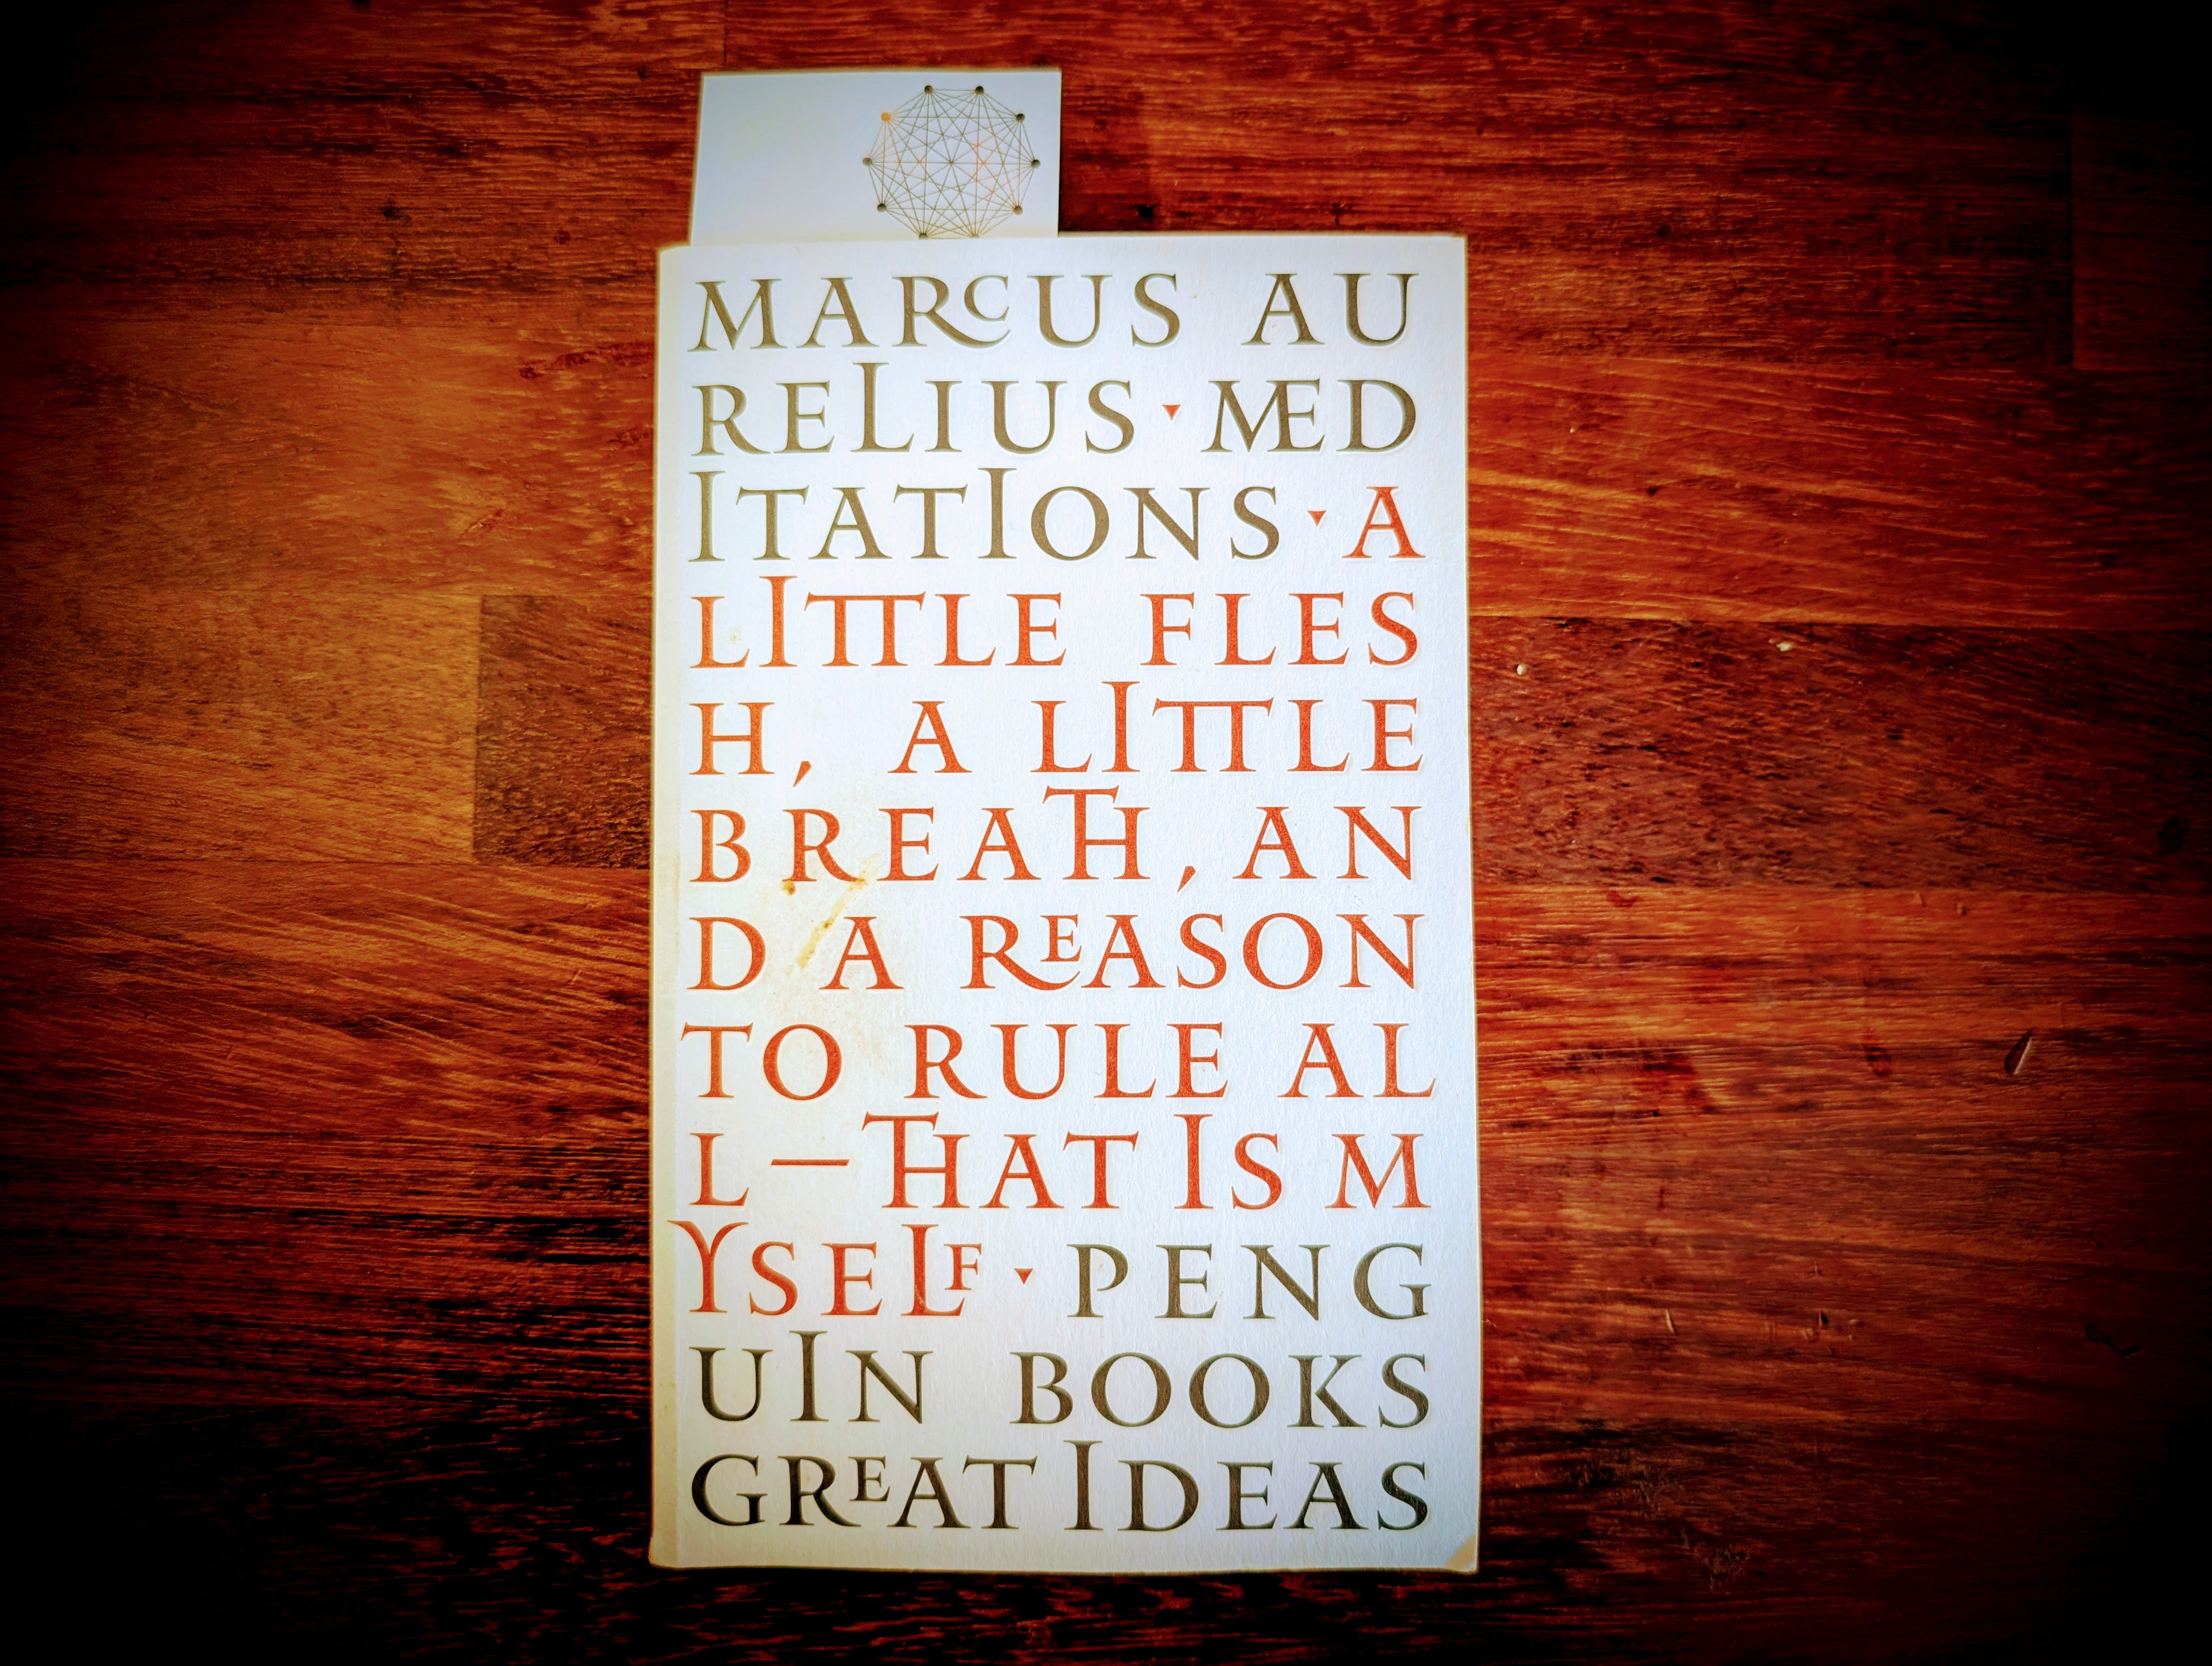 MARCUS AU
RELIUS · MED
ITATIONS · A
LITTLE FLES
H, A LITTLE
BREATH, AN
D A REASON
TO RULE AL
L — THAT IS M
YSELF · PENG
UIN BOOKS
GREAT IDEAS